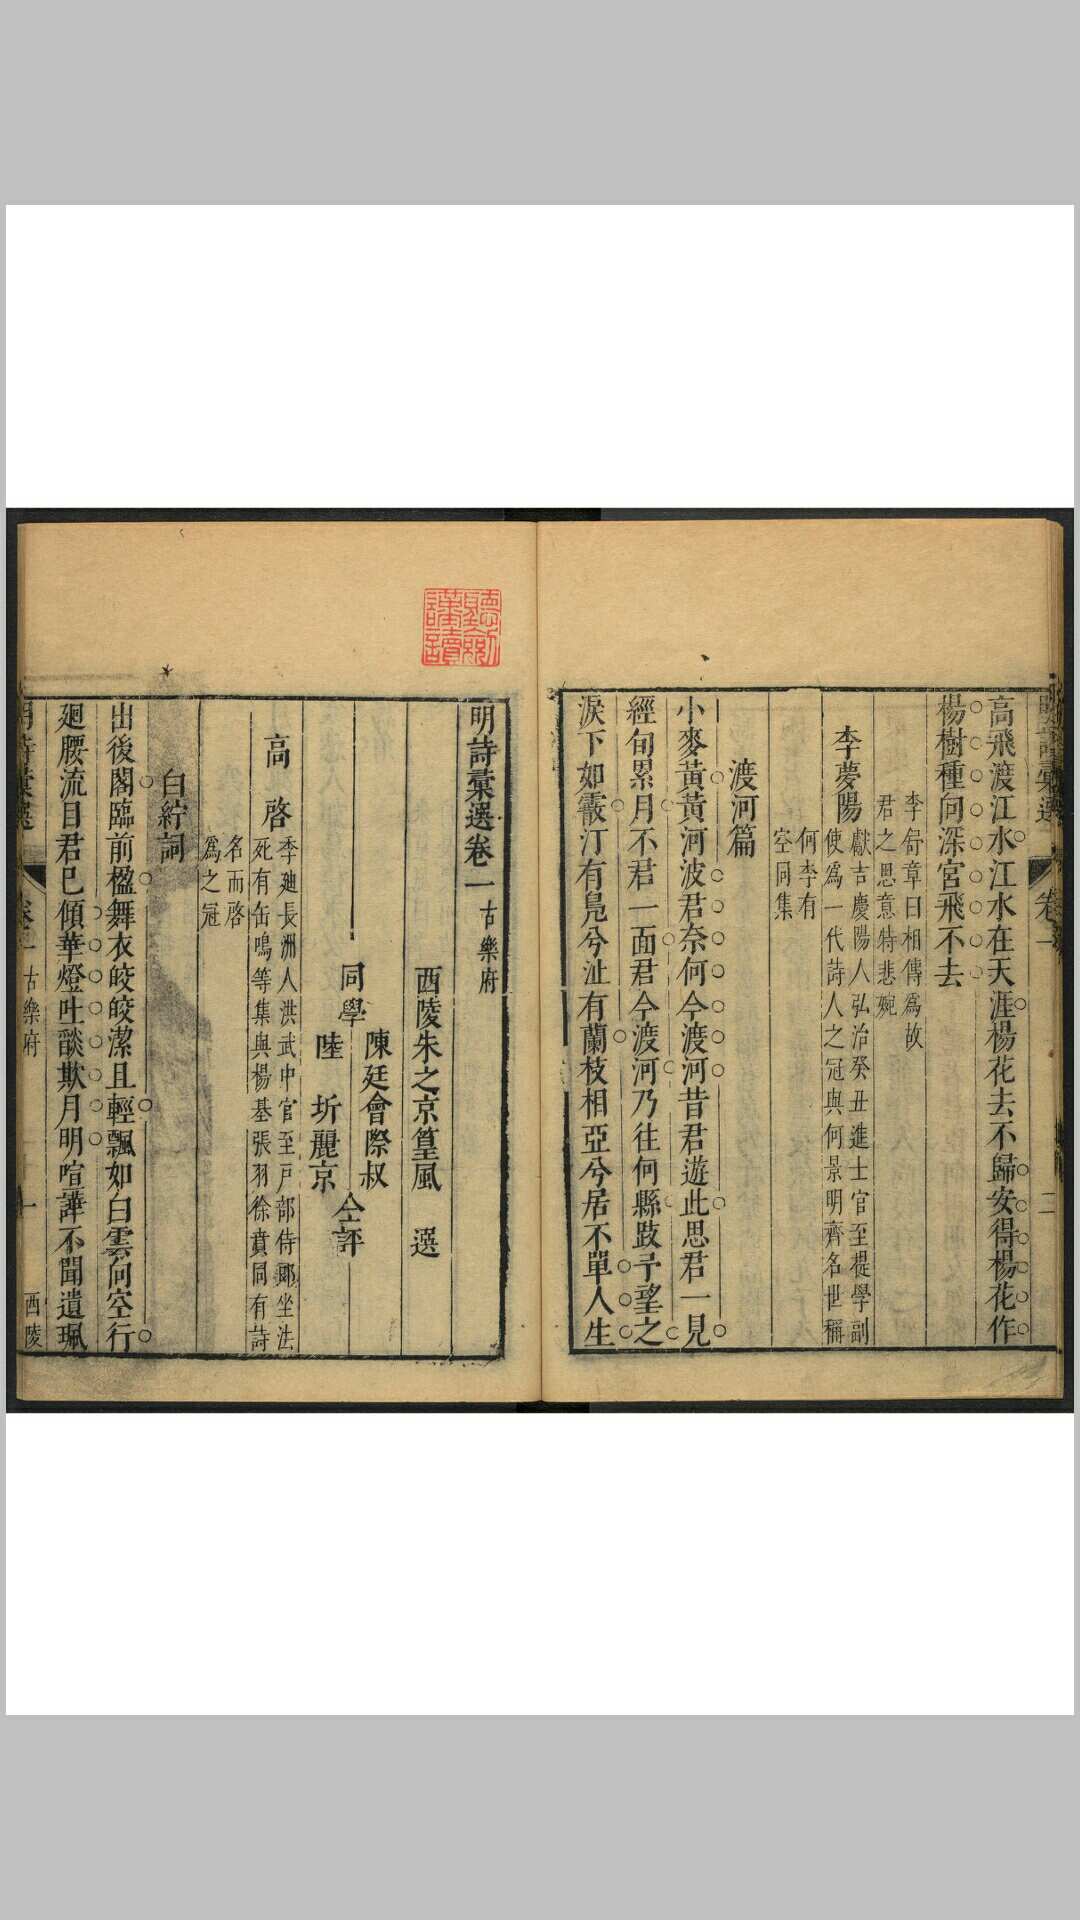 明詩彙選 卷一 二
高飛渡江水江水在天涯楊花去不歸安得楊花作
楊樹種向深宮飛不去
李舒章曰相傳為故
君之思意特悲婉
李夢陽 獻吉慶陽人弘治癸丑進士官至提學副
使為一代詩人之冠與何景明齊名世稱
何李有
空同集
渡河篇
小麥黃黃河波君奈何今渡河昔君遊此思君一見
經旬累月不君一面君今渡河乃往何縣跂予望之
淚下如霰汀有鳧兮沚有蘭枝相亞兮居不單人生
明詩彙選卷一 古樂府
西陵朱之京篁風 選
同學
陳廷會際叔
陸 圻麗京
仝評
高 啓 季廸長洲人洪武中官至戶部侍郎坐法
死有缶鳴等集與楊基張羽徐賁同有詩
名而啓
為之冠
白紵詞
出後閣臨前楹舞衣皎皎潔且輕飄如白雲向空行
廻腰流目君已傾華燈吐燄欺月明喧譁不聞遺珮
明詩彙選 卷一 古樂府 一 西陵